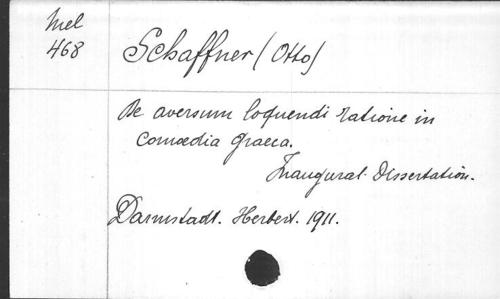 Mel
468
Schaffner (Otto)
De aversum loquendi ratione in
comœdia graeca.
Inaugural-Dissertation.
Darmstadt. Herbert. 1911.